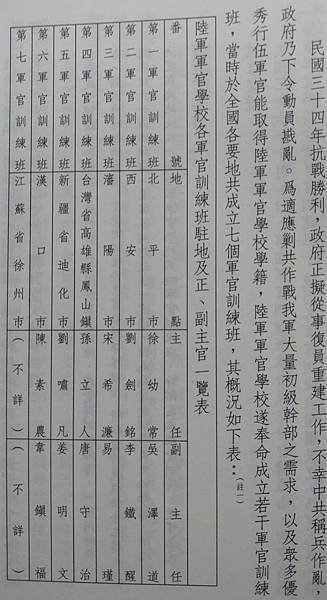 民國三十四年抗戰勝利，政府正擬從事復員重建工作，不幸中共稱兵作亂，
政府乃下令動員戡亂。爲適應剿共作戰我軍大量初級幹部之需求，以及眾多優
秀行伍軍官能取得陸軍軍官學校學籍，陸軍軍官學校遂奉命成立若干軍官訓練
班，當時於全國各要地共成立七個軍官訓練班，其概況如下表：（註一）
陸軍軍官學校各軍官訓練班駐地及正、副主官一覽表
番號 地點 主任 副主任
第一軍官訓練班 北平市 徐幼常 吳澤道
第二軍官訓練班 西安市 劉劍銘 李鐵醒
第三軍官訓練班 瀋陽市 宋希濂 易瑾
第四軍官訓練班 台灣省高雄縣鳳山鎮 孫立人 唐守治
第五軍官訓練班 新疆省迪化市 劉嘯凡 姜明文
第六軍官訓練班 漢口市 陳素農 韋鎮福
第七軍官訓練班 江蘇省徐州市 （不詳） （不詳）